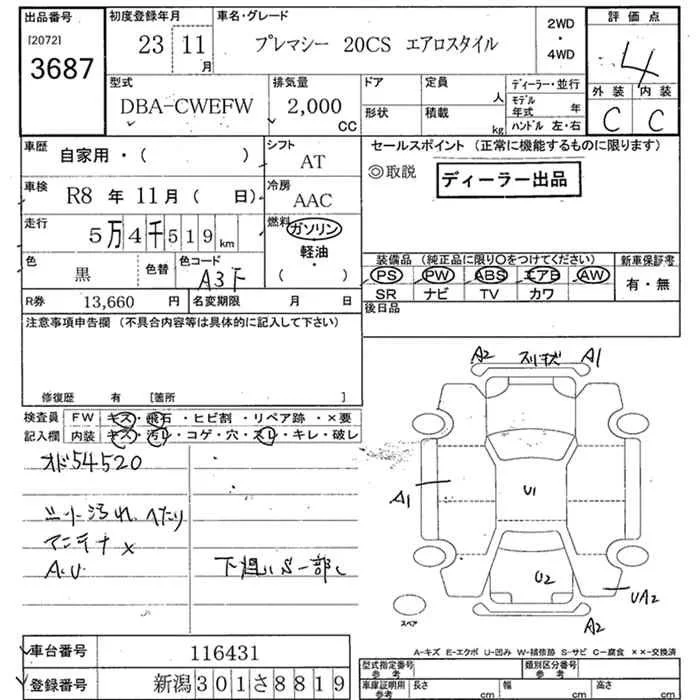 出品番号 初度登録年月 車名・グレード 2WD ・ 4WD 評価点
[2072] 3687 23 11月 プレマシー 20CS エアロスタイル 4
型式 排気量 ドア 定員 人 ディーラー・並行 外装 内装
DBA-CWEFW 2,000 CC 形状 積載 kg モデル年式 年 C C
ハンドル 左・右
車歴 自家用・( ) シフト AT セールスポイント (正常に機能するものに限ります)
◎取説 ディーラー出品
車検 R8 年 11月 ( 日) 冷房 AAC
走行 5万4千519 km 燃料 ガソリン・軽油・( )
色 黒 色替 色コード A3F
装備品 (純正品に限り〇をつけてください) 新車保証書
PS PW ABS エアB AW 有・無
SR ナビ TV カワ
R券 13,660 円 名変期限 月 日
後日品
注意事項申告欄 (不具合内容等は具体的に記入して下さい)
修復歴 有 [箇所 ]
検査員記入欄 FW キズ・飛石・ヒビ割・リペア跡・×要
内装 キズ・汚レ・コゲ・穴・スレ・キレ・破レ
オド54520
汚れ へたり
アンテナ×
A.U
下廻りS一部
A2 スリキズ A1
A1 U1
U2 UA2
スペア A2
A-キズ E-エクボ U-凹み W-補修跡 S-サビ C-腐食 ××-交換済
車台番号 116431
登録番号 新潟301さ8819
型式指定番号 参考 類別区分番号 参考
車庫証明用 参考 長さ cm 幅 cm 高さ cm